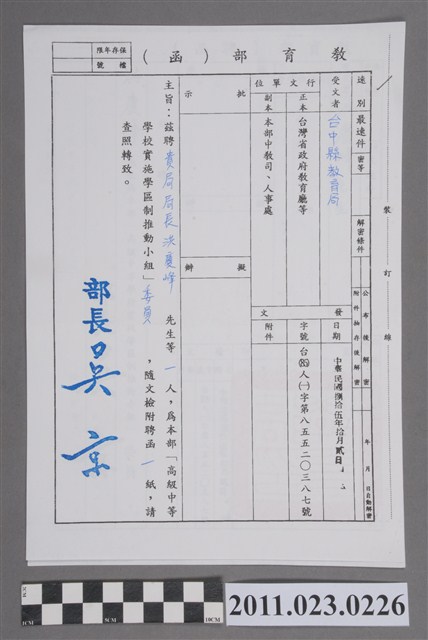 保存年限
檔號
教育部（函）
速別
最速件
密等
解密條件
公布後解密
附件抽存後解密
年 月 日自動解密
裝 訂 線
受文者
台中縣教育局
行文單位
正本
台灣省政府教育廳等
副本
本部中教司、人事處
發文
日期
中華民國捌拾伍年拾月貳日
字號
台(85)人(一)字第八五五二〇三八七號
附件
批示
擬辦
主旨：茲聘貴局局長洪慶峰 先生等 一 人，為本部「高級中等
學校實施學區制推動小組」委員 ，隨文檢附聘函 一 紙，請
查照轉致。
部長吳京
1CM
5CM
10CM
2011.023.0226